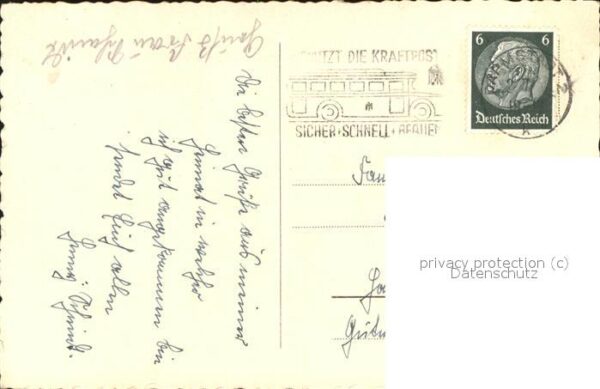 Gruß Frau Schmidt
Die besten Grüße aus meiner
Heimat in welcher
ich gut angekommen bin
sendet Euch allen
Schmidt.
NUTZT DIE KRAFTPOST
SICHER + SCHNELL + BEQUEM
6 6
Deutsches Reich
Fam
privacy protection (c)
Datenschutz